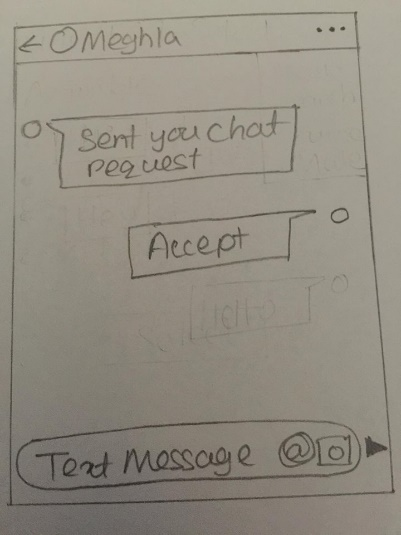 Meghla
Sent you chat
request
Accept
Hello
Text Message @